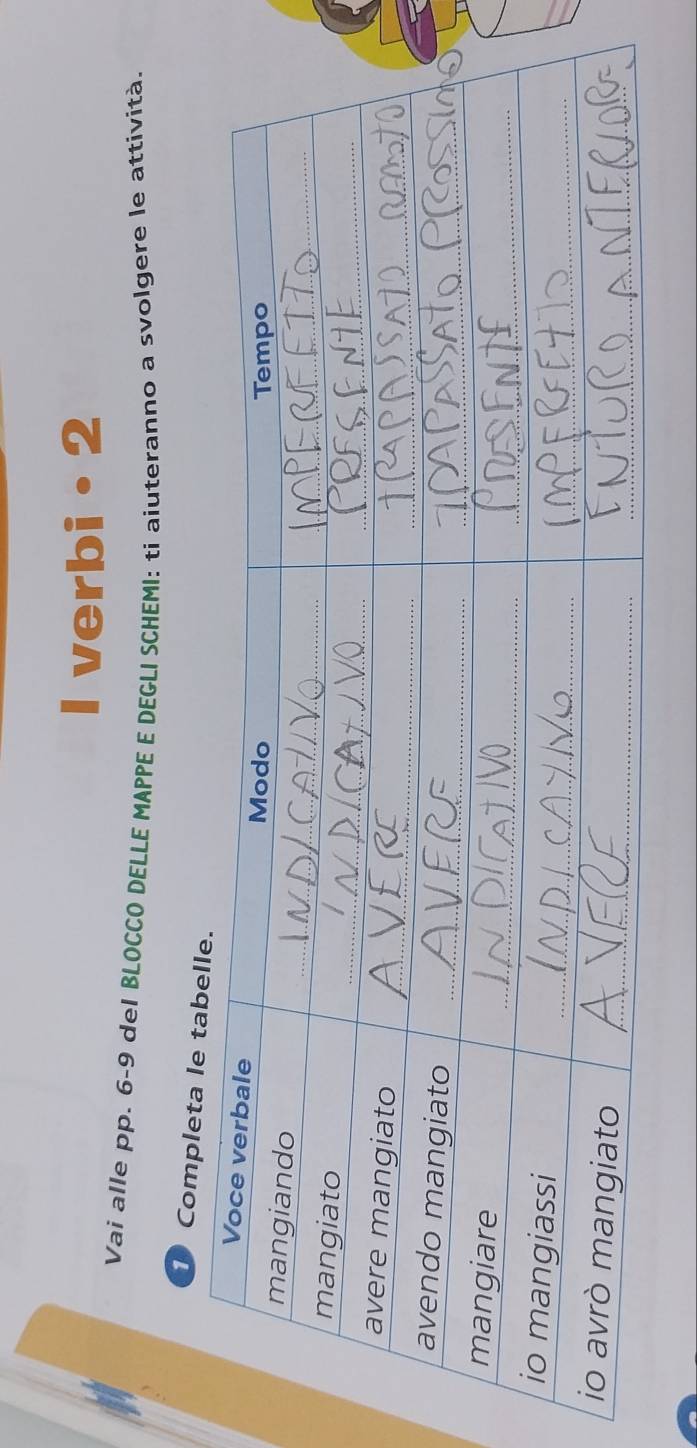 I verbi • 2
Vai alle pp. 6-9 del BLOCCO DELLE MAPPE E DEGLI SCHEMI: ti aiuteranno a svolgere le attività.
1 Completa le tabelle.
Voce verbale Modo Tempo
mangiando INDICATIVO IMPERFETTO
mangiato INDICATIVO PRESENTE
avere mangiato AVERE TRAPASSATO REMOTO
avendo mangiato AVERE TRAPASSATO PROSSIMO
mangiare INDICATIVO PRESENTE
io mangiassi INDICATIVO IMPERFETTO
io avrò mangiato AVERE ANTERIORE